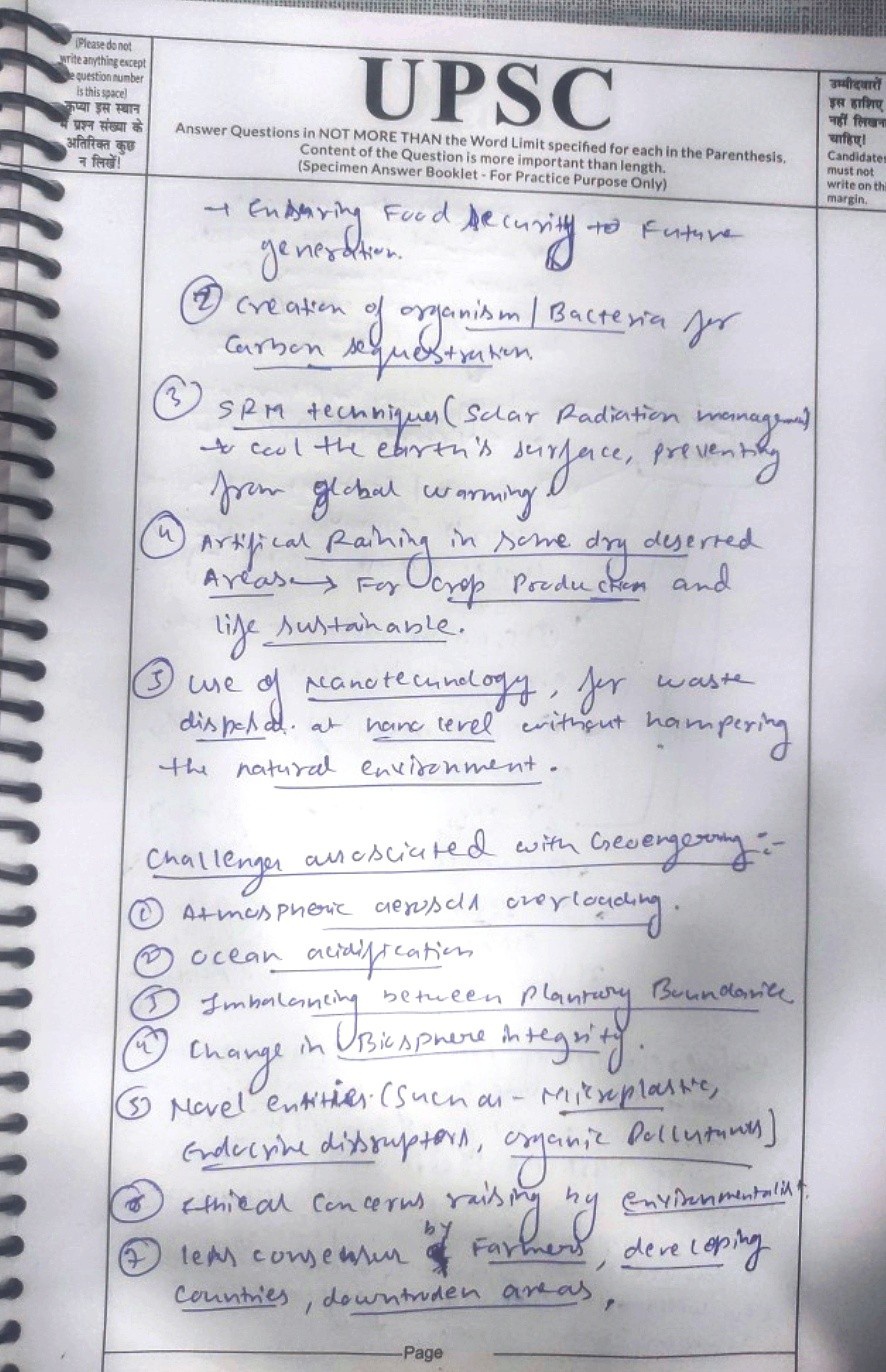 (Please do not
write anything except
e question number
is this space)
कृप्या इस स्थान
में प्रश्न संख्या के
अतिरिक्त कुछ
न लिखें!
UPSC
Answer Questions in NOT MORE THAN the Word Limit specified for each in the Parenthesis.
Content of the Question is more important than length.
(Specimen Answer Booklet - For Practice Purpose Only)
उम्मीदवारों
इस हाशिए
नहीं लिखन
चाहिए!
Candidates
must not
write on th
margin.
→ Ensuring Food security to Future
generation.
② Creation of organism / Bacteria for
Carbon sequestration.
③ SRM techniques (Solar Radiation management)
to cool the earth's surface, preventing
from global warming.
④ Artifical Raining in some dry deserted
Areas → For crop Production and
life sustainable.
⑤ use of nanotechnology, for waste
disposal. at nano level without hampering
the natural environment.
Challenges associated with Geoengerring :-
① Atmospheric aerosols overloading.
② Ocean acidification
③ Imbalancing between Plantary Boundaries
④ Change in Biosphere integrity.
⑤ Novel entities (Such as - Microplastic,
Endocrine disruptors, organic Pollutants)
⑥ Ethical Concerns raising by environmentalist.
⑦ less consensus by Farmers, developing
Countries, downtroden areas,
Page